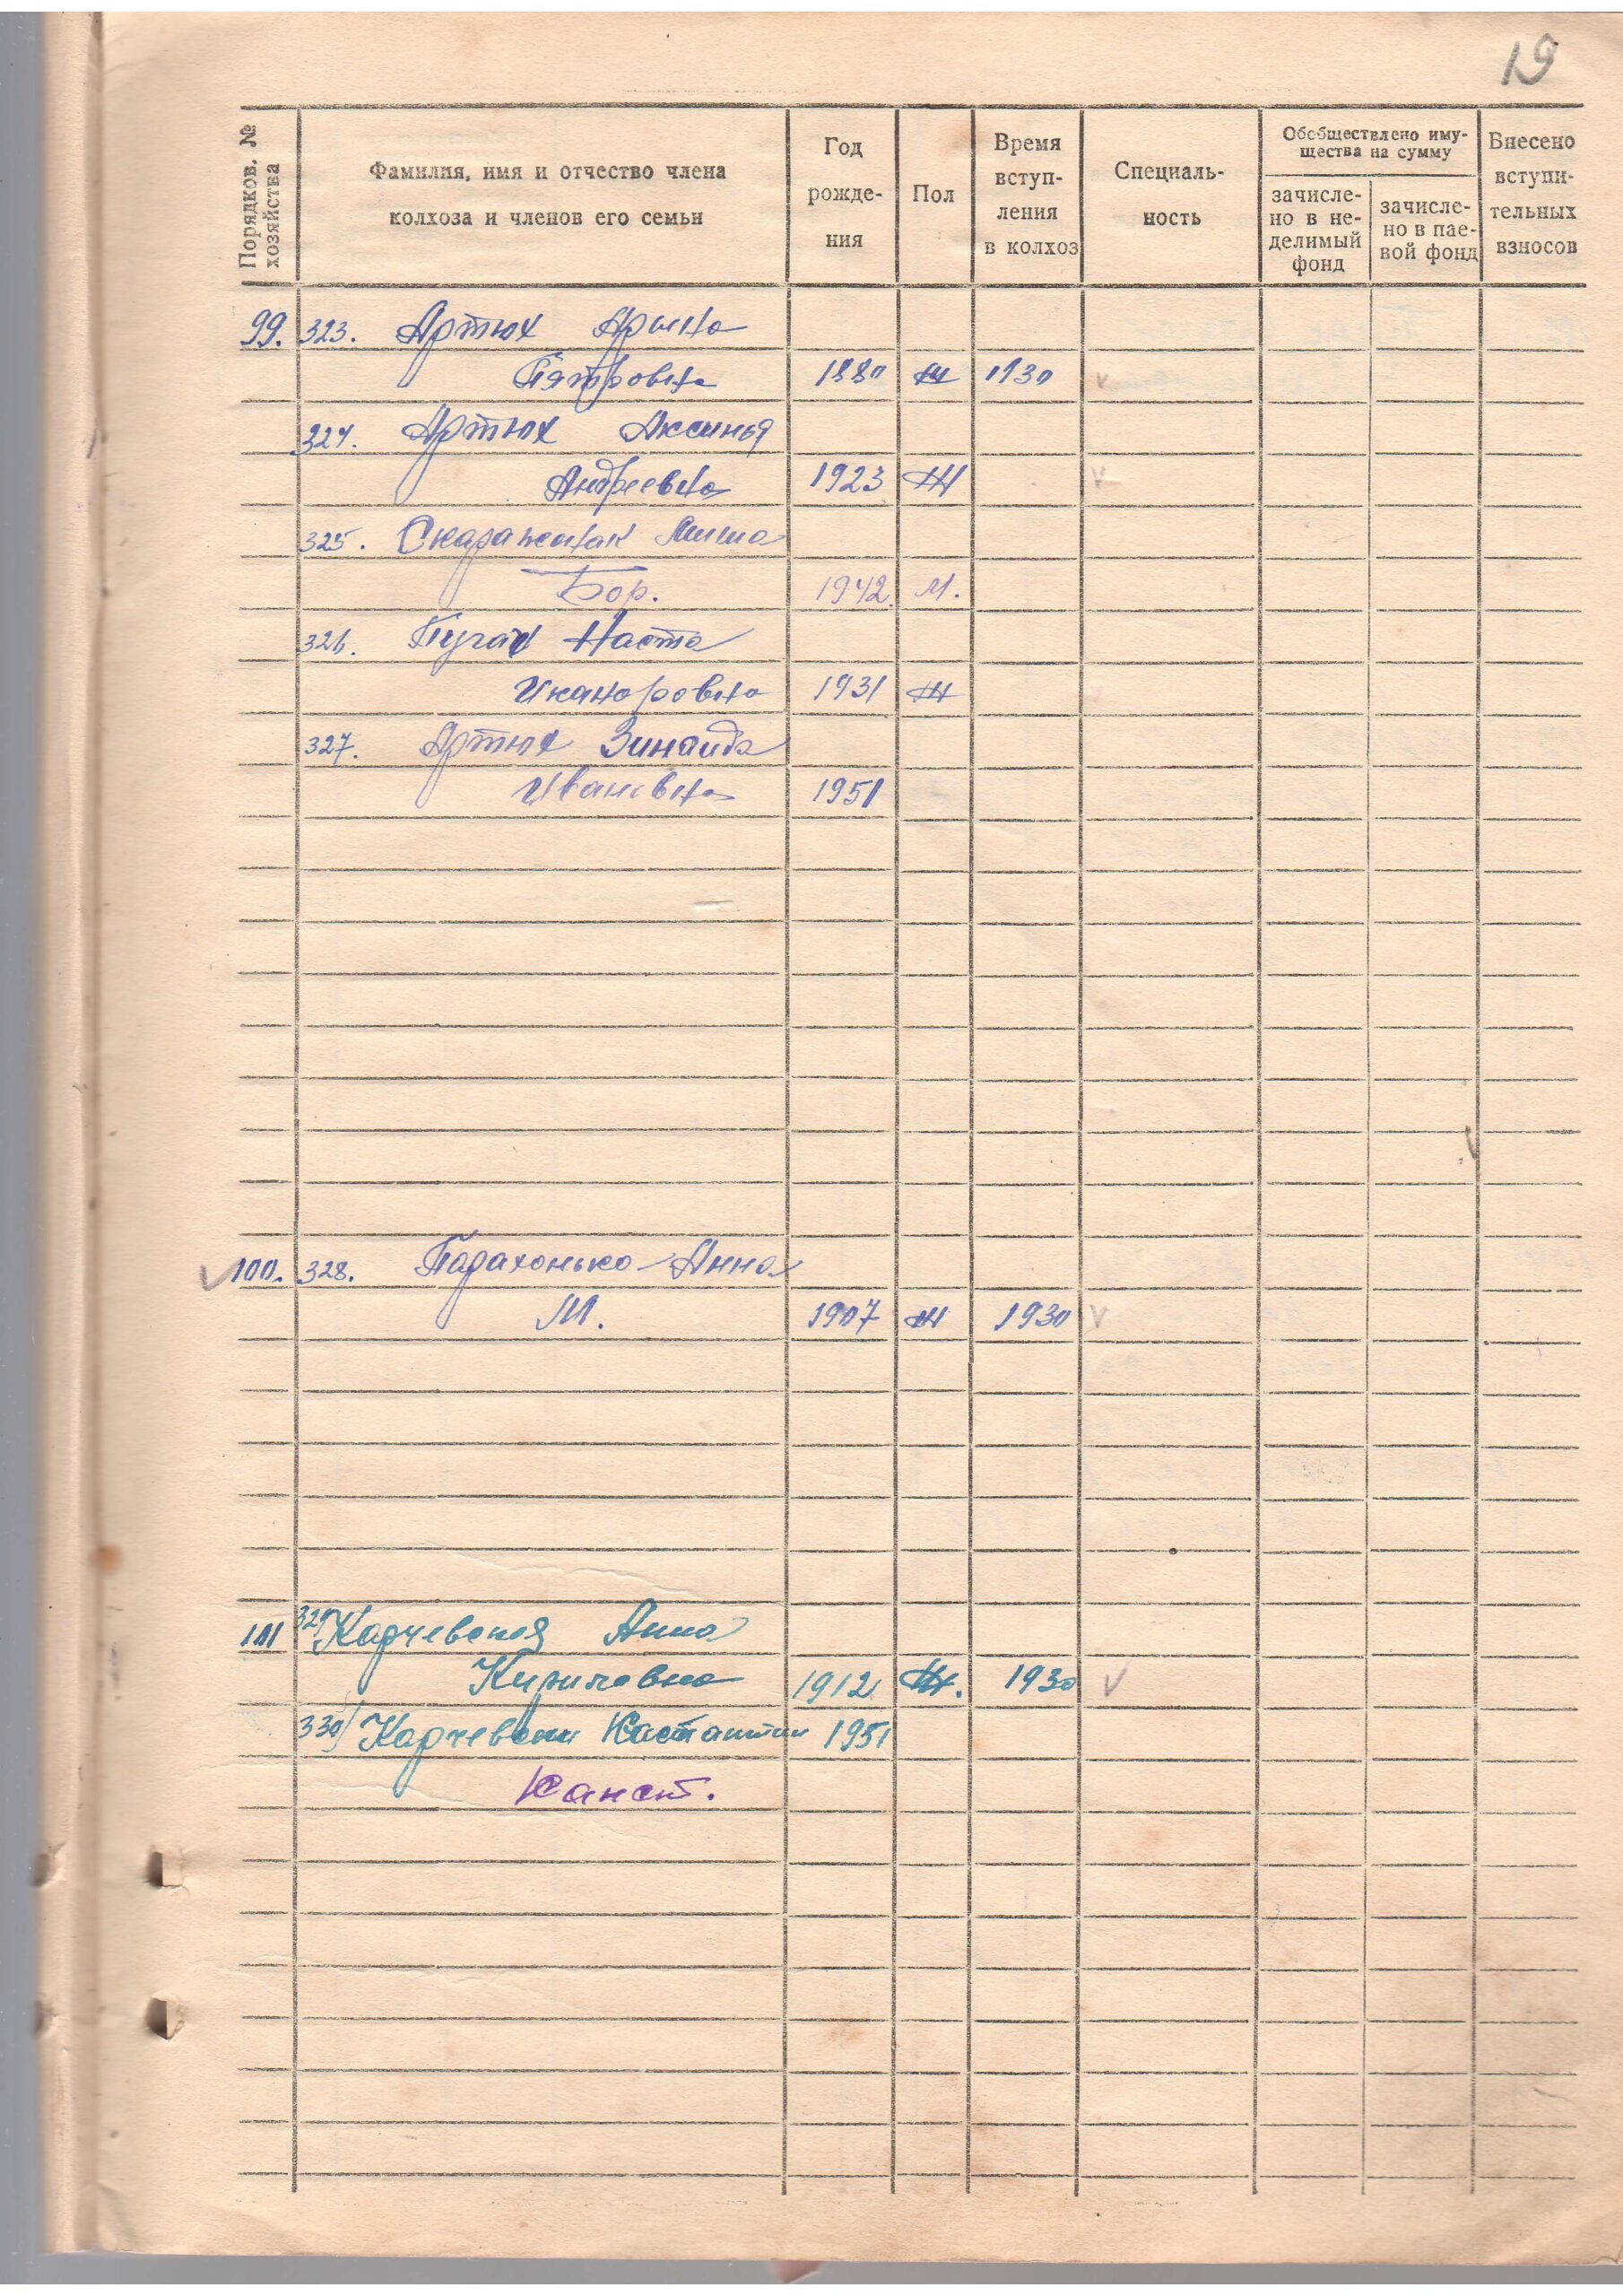 19
Порядков. № хозяйства
Фамилия, имя и отчество члена колхоза и членов его семьи
Год рождения
Пол
Время вступления в колхоз
Специальность
Обобществлено имущества на сумму
зачислено в неделимый фонд
зачислено в паевой фонд
Внесено вступительных взносов
99. 323. Артюх Арина
Пятровна 1880 ж 1930
324. Артюх Аксинья
Андреевна 1923 Ж
325. Миша
Бор. 1942 М.
326. Пугач Наста
Иканоровна 1931 ж
327. Артюх Зинаида
Ивановна 1951
100. 328. Парахонько Анна
М. 1907 ж 1930
101 329) Карчевская Анна
Кириловна 1912 Ж. 1930
330) Карчевски Кастантин 1951
Канст.